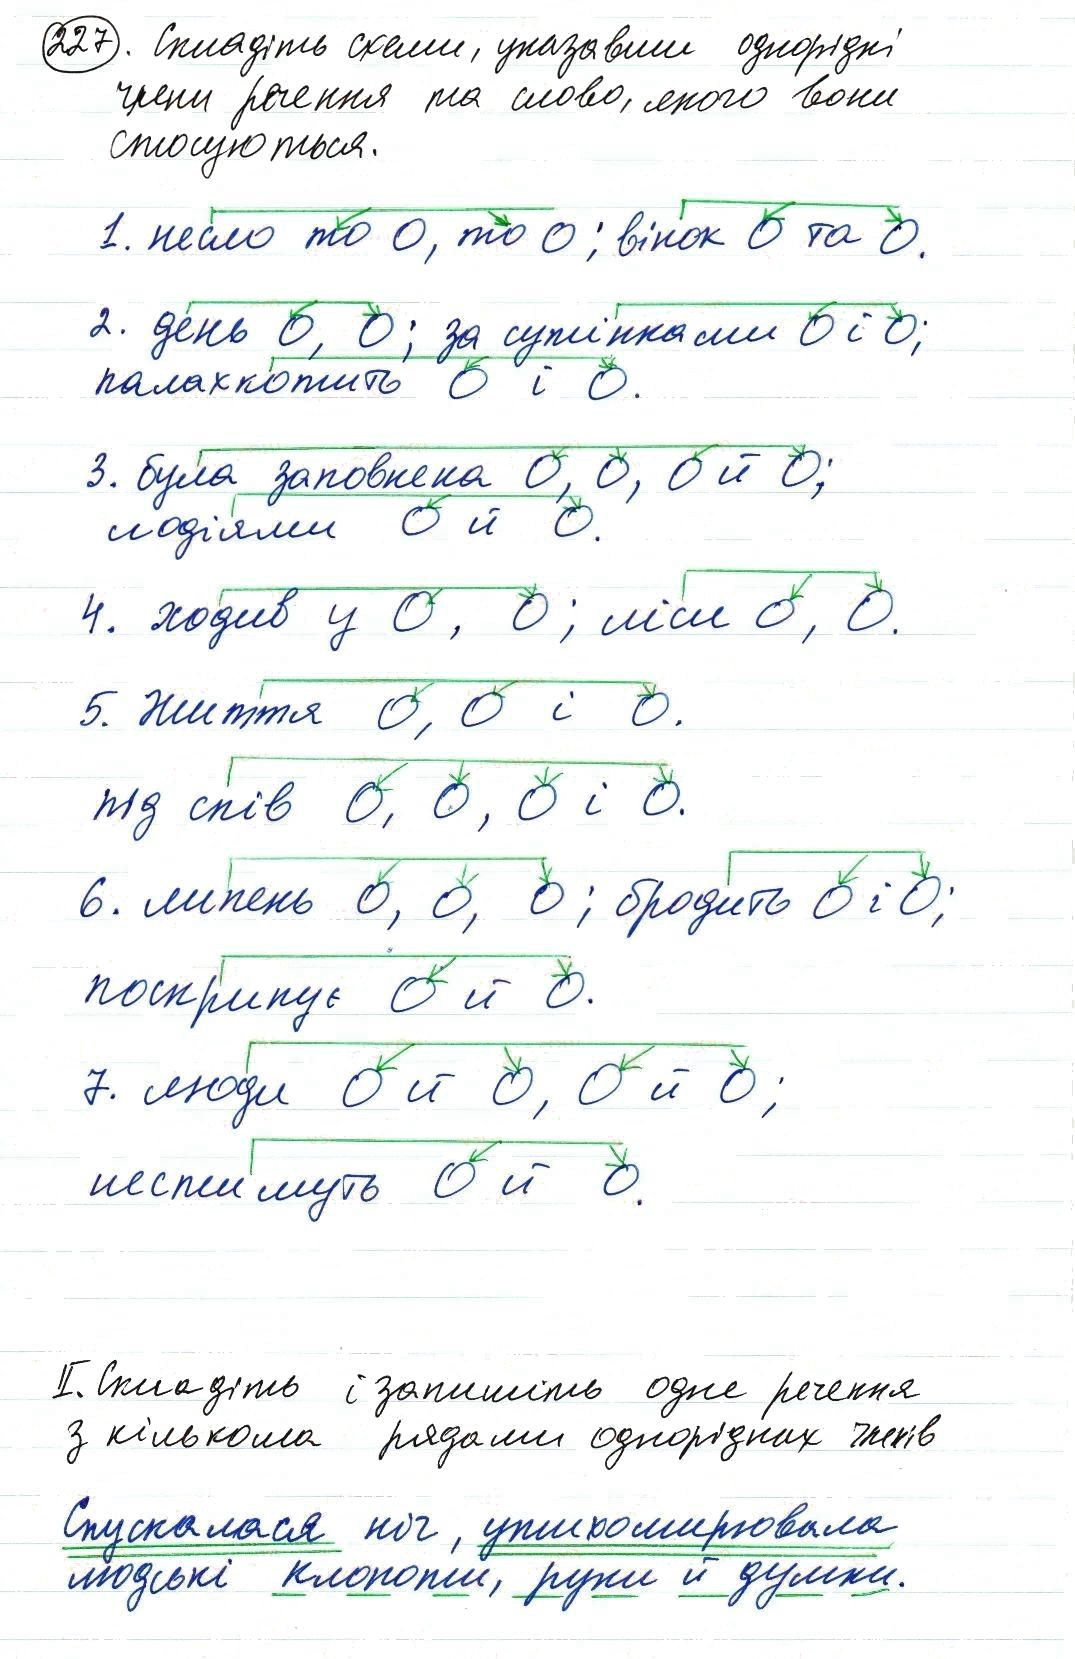 227. Складіть схеми, указавши однорідні
члени речення та слово, якого вони
стосуються.
1. несло то О, то О; вінок О та О.
2. день О, О; за сутінками О і О;
палахкотить О і О.
3. була заповнена О, О, О й О;
подіями О й О.
4. ходив у О, О; ліси О, О.
5. Життя О, О і О.
під спів О, О, О і О.
6. липень О, О, О; бродить О і О;
поскрипує О й О.
7. люди О й О, О й О;
нестимуть О й О.
II. Складіть і запишіть одне речення
з кількома рядами однорідних членів
Спускалася ніч, утихомирювала
людські клопоти, рухи й думки.